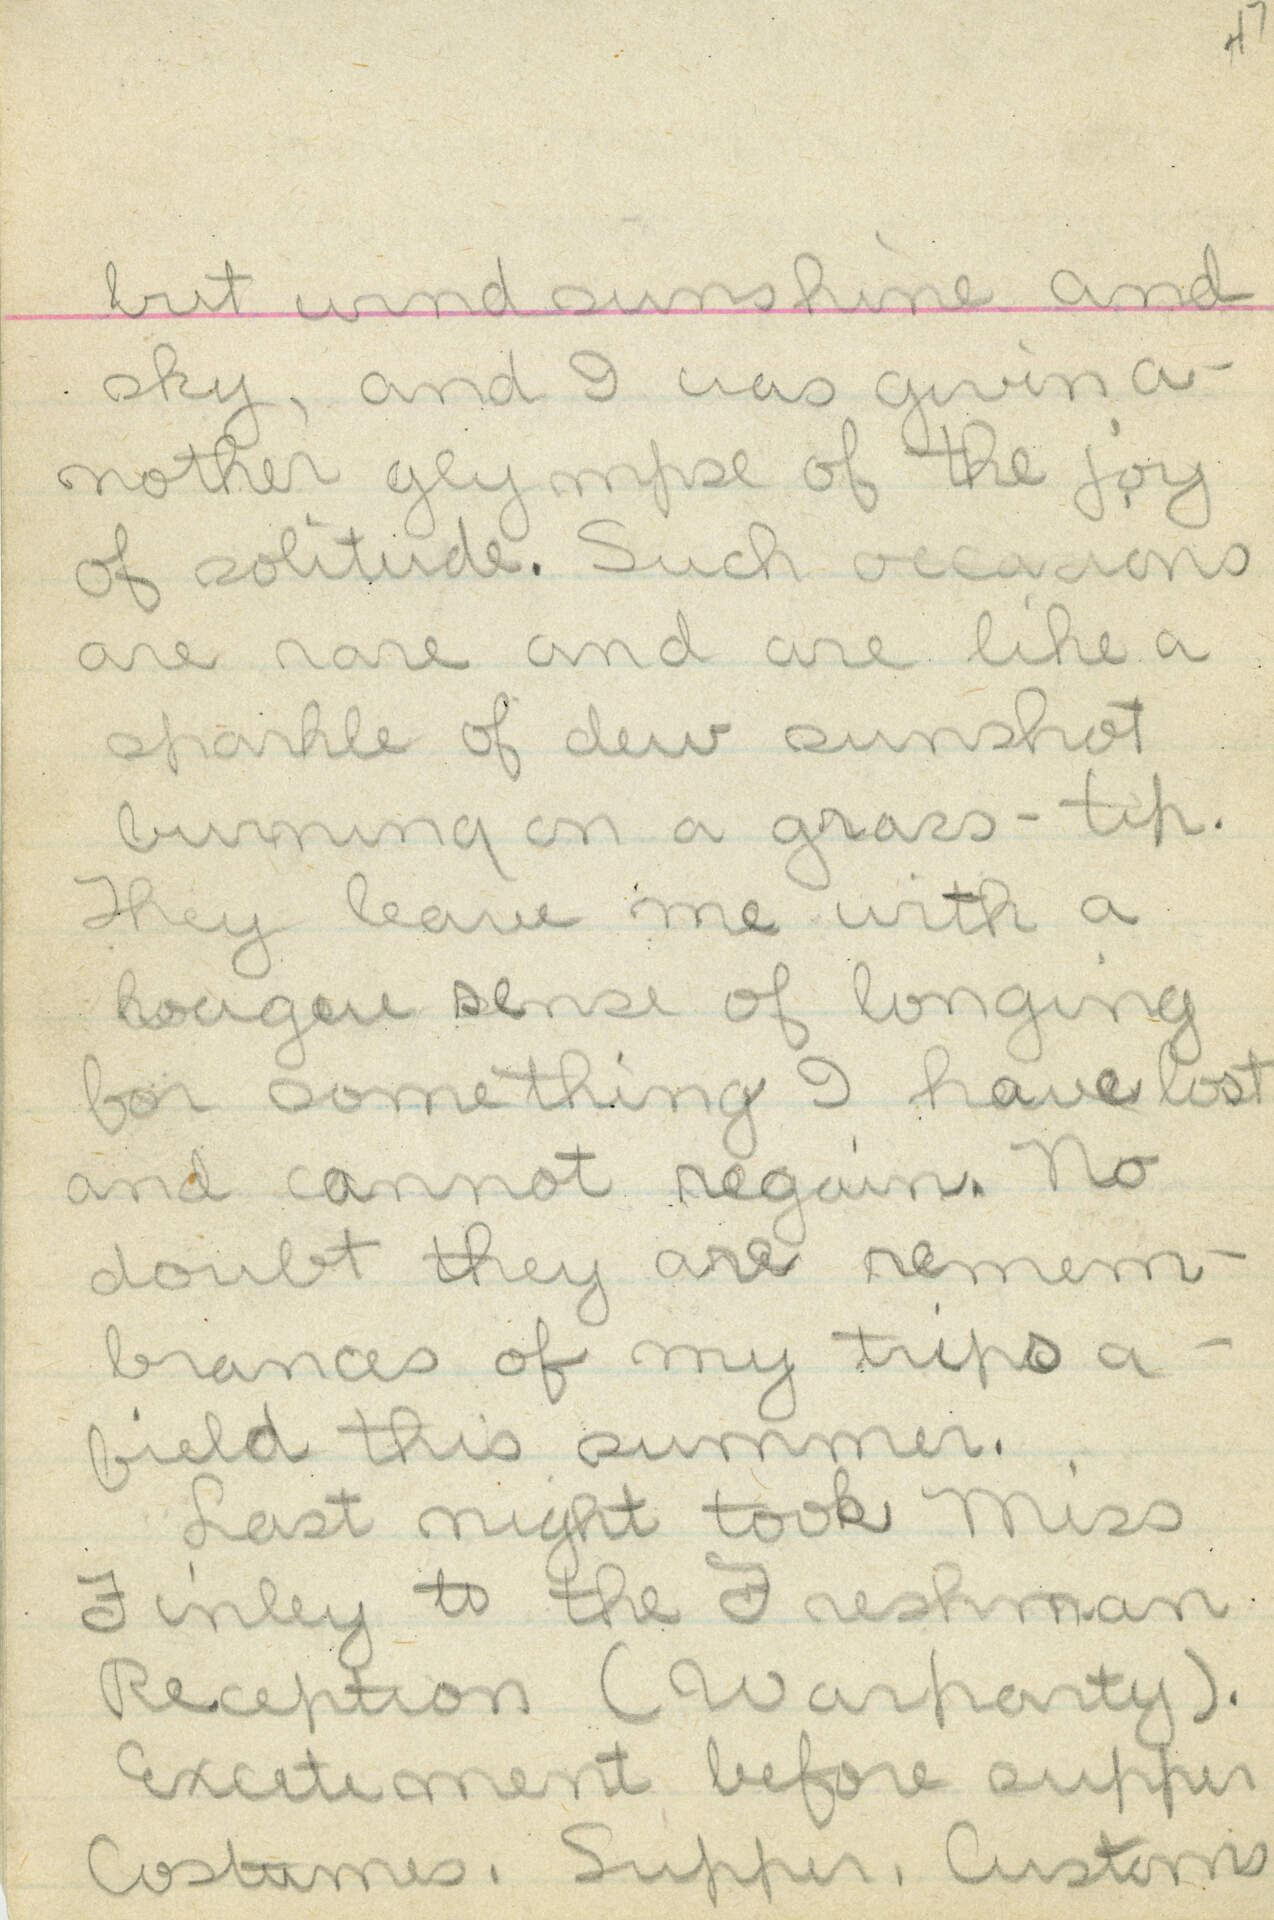 47
but wind sunshine and
sky, and I was givin a-
nother glympse of the joy
of solitude. Such occasions
are rare and are like a
sparkle of dew sunshot
burning on a grass-tip.
They leave me with a
sense of longing
for something I have lost
and cannot regain. No
doubt they are remem-
brances of my trips a-
field this summer.
Last night took Miss
Finley to the Freshman
Reception (Warparty).
Excetement before supper
Costumes. Supper. Customs